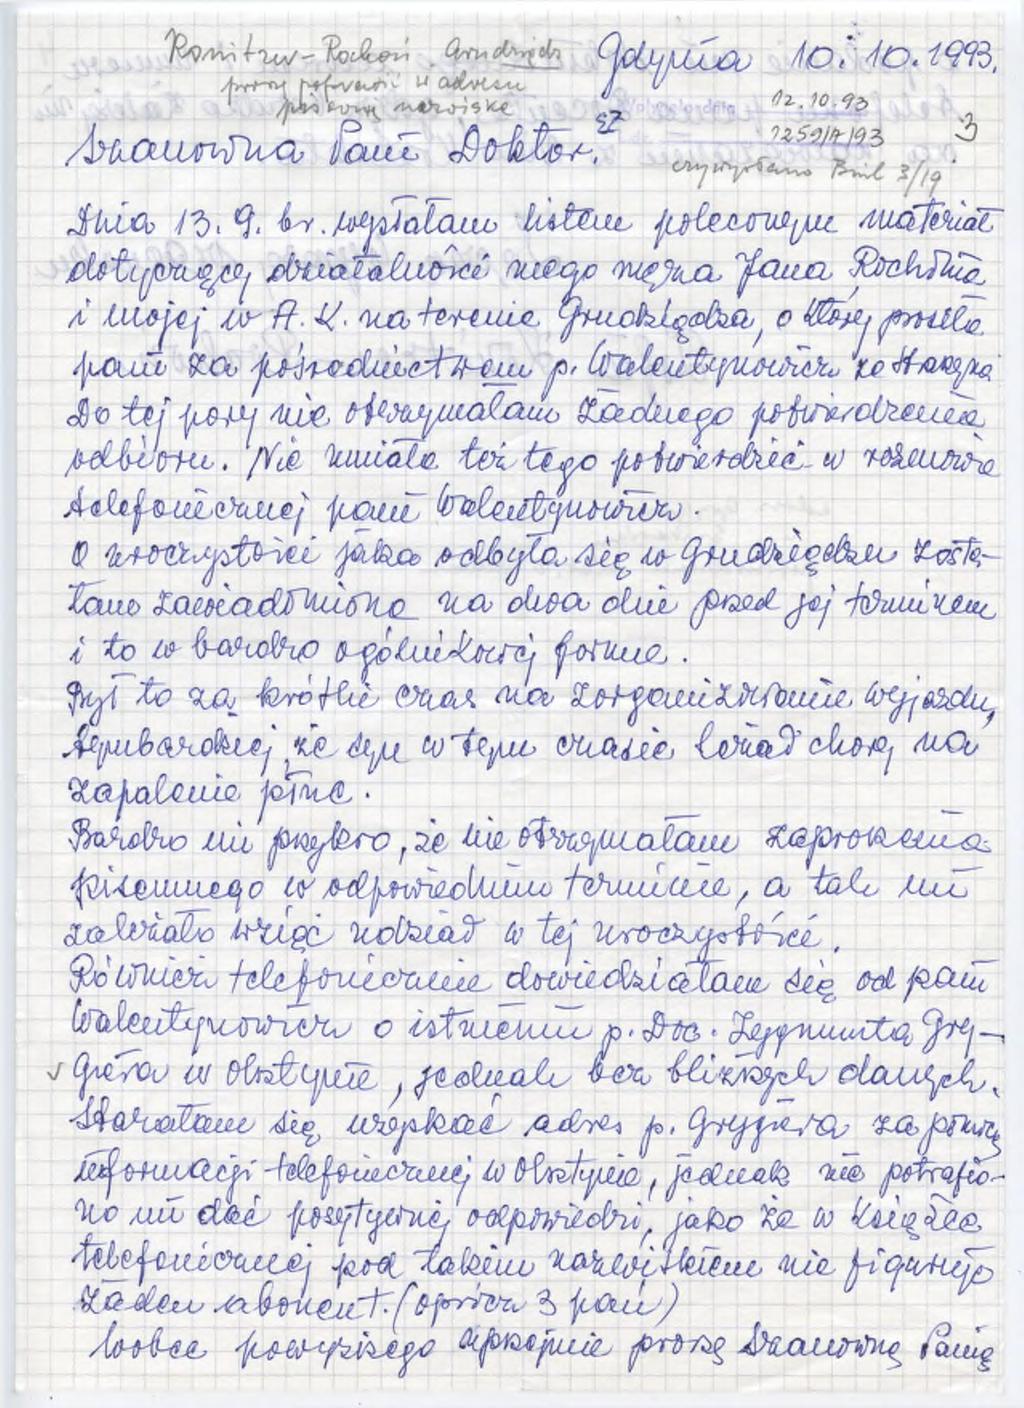 Konitzer-Rochoń Grudziądz
proszę poprawić w adresu
pisownię nazwiska
Gdynia 10.10.1993.
12.10.93
1259/A/93
3
Szanowna Pani Doktor.
Biul 3/19
Dnia 13.9. br. wysłałam listem poleconym materiał
dotyczącej działalności mego męża Jana Rochonia
i mojej w A.K. na terenie Grudziądza, o który prosiła
pani za pośrednictwem p. Walentynowicz ze Starej
Do tej pory nie otrzymałam żadnego potwierdzenia
odbioru. Nie umiała też tego potwierdzić w rozmowie
telefonicznej pani Walentynowicz.
O uroczystości jaka odbyła się w Grudziądzu zosta-
łam zawiadomiona na dwa dni przed jej terminem
i to w bardzo ogólnikowej formie.
Był to za krótki czas na zorganizowanie wyjazdu,
tymbardziej, że syn w tym czasie leżał chory na
zapalenie płuc.
Bardzo mi przykro, że nie otrzymałam zaproszenia
pisemnego w odpowiednim terminie, a tak mi
zależało wziąć udział w tej uroczystości.
Również telefonicznie dowiedziałam się od pani
Walentynowicz o istnieniu p. Doc. Zygmunta Gry-
giera w Olsztynie, jednak bez bliższych danych.
Starałam się uzyskać adres p. Grygiera za pomocą
informacji telefonicznej w Olsztynie, jednak nie potrafio-
no mi dać pozytywnej odpowiedzi, jako że w książce
telefonicznej pod takim nazwiskiem nie figuruje
żaden abonent. (oprócz 3 pań)
Wobec powyższego uprzejmie proszę Szanowną Panią